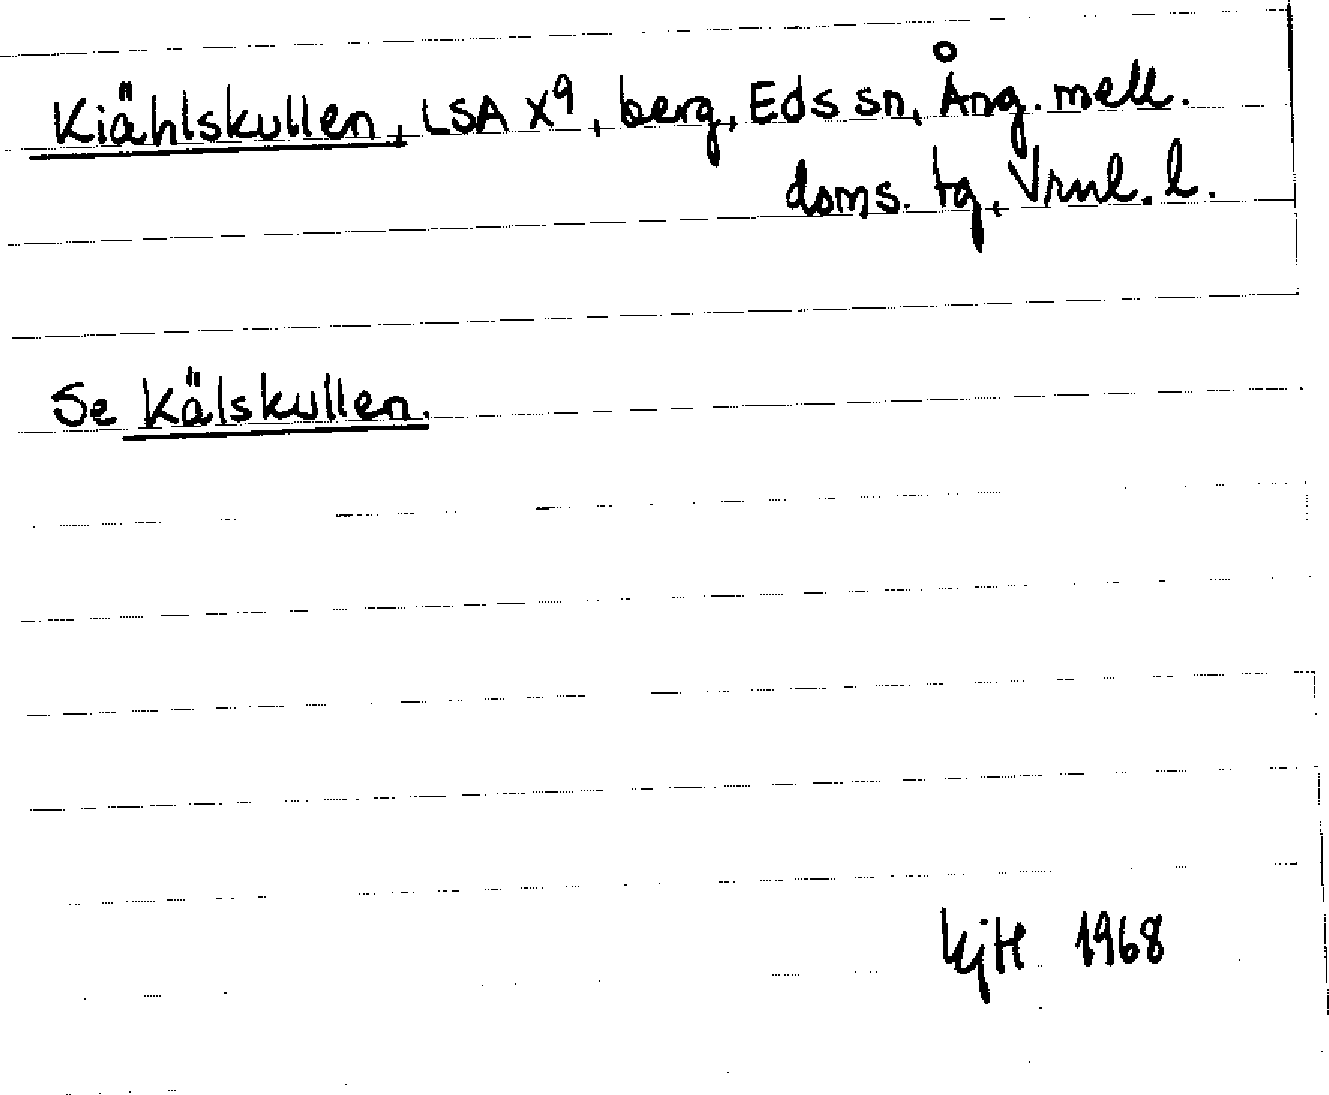 Kiählskullen, LSA X9, berg, Eds sn, Ång. mell.
doms. tg, Vrml. l.
Se Kälskullen.
1968